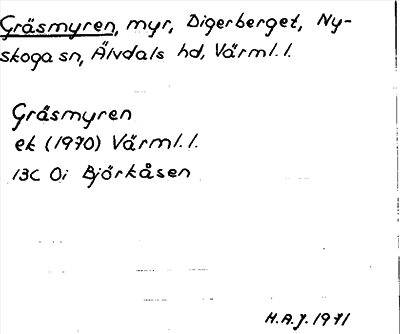 Gräsmyren, myr, Digerberget, Ny-
skoga sn, Älvdals hd, Värml. l.
Gräsmyren
ek (1970) Värml. l.
13C 0i Björkåsen
H.A.J. 1971